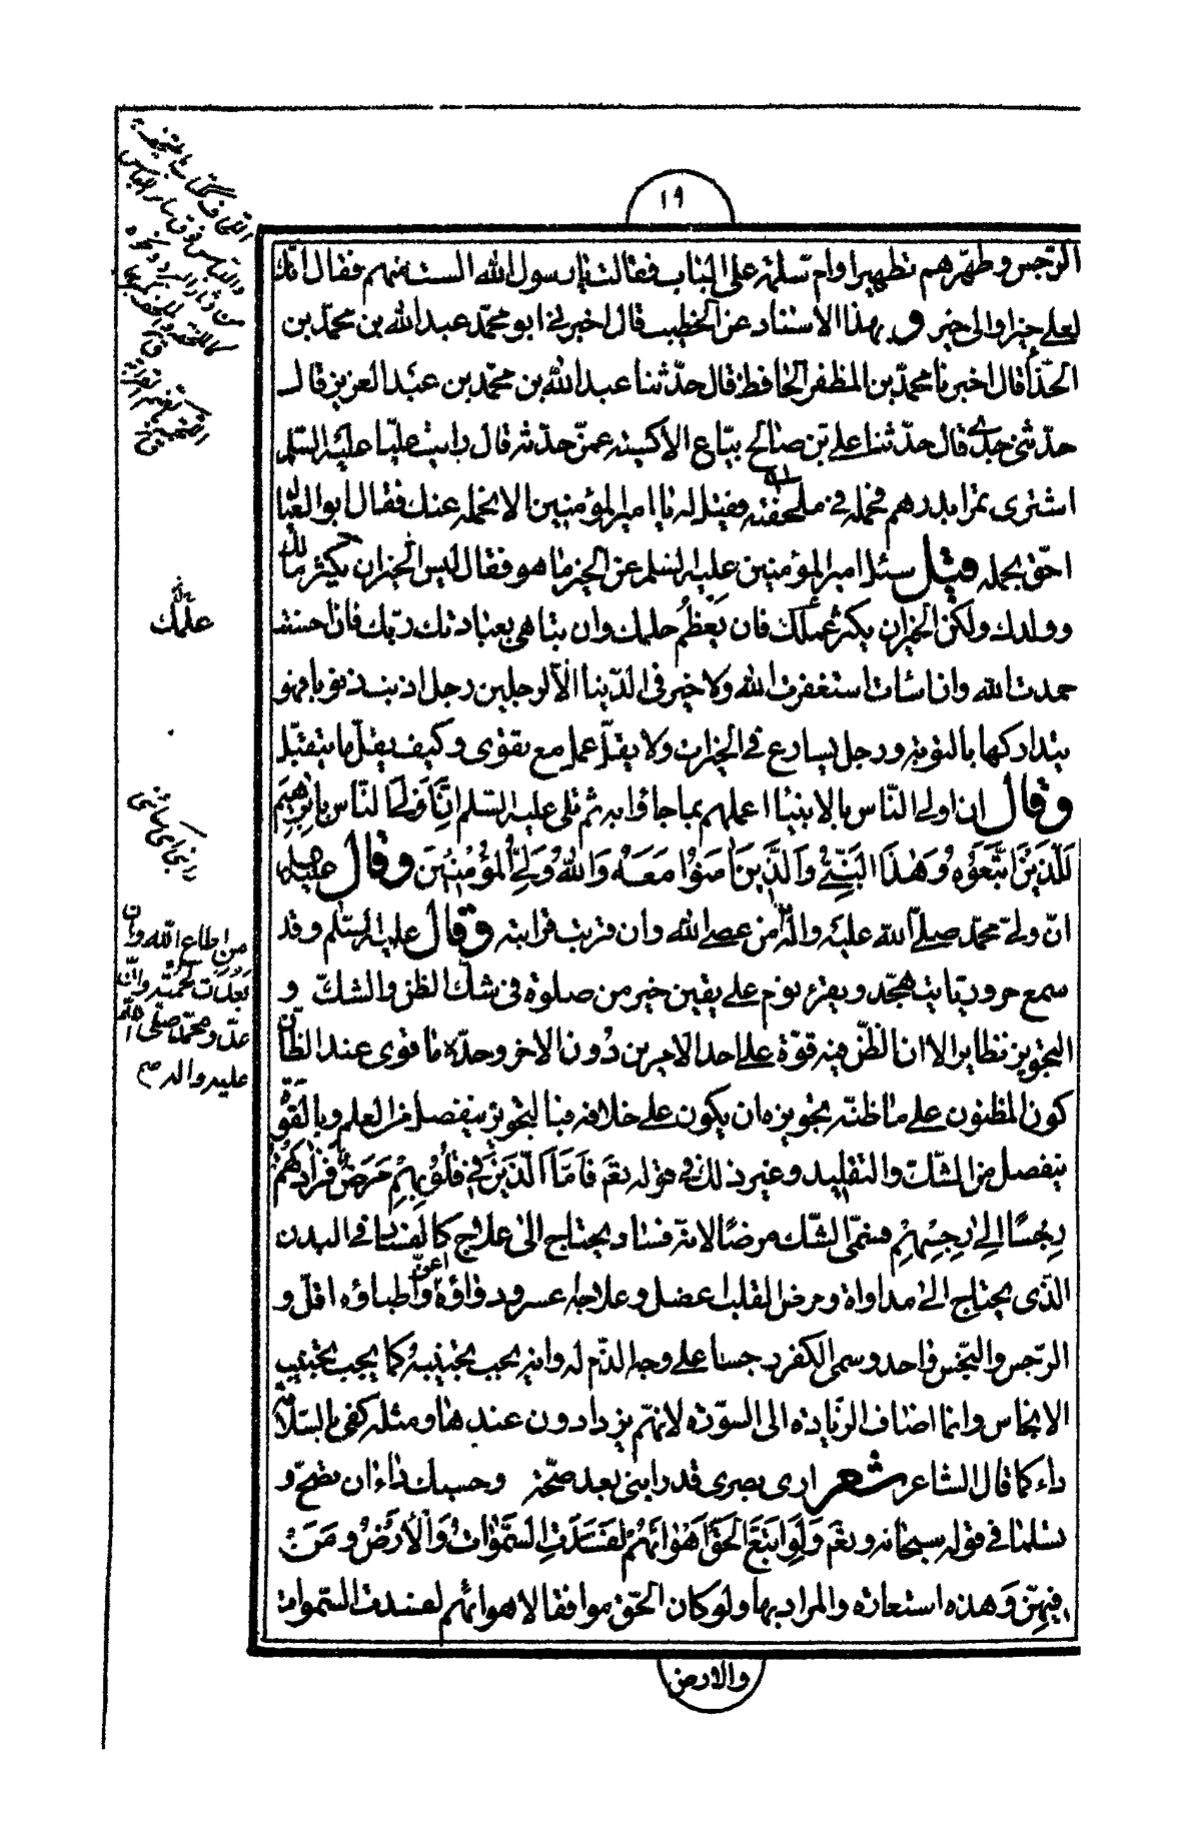 ١٩
الرّجس و طهّرهم تطهيرا وام سلمة على الباب فقالت يا رسول الله الست منهم فقال انّك
لعلى خير او الى خير و بهذا الاسناد عن الخطيب قال اخبرنى ابو محمّد عبد الله بن محمّد بن
الحذّأ قال اخبرنا محمّد بن المظفر الحافظ قال حدّثنا عبد الله بن محمّد بن عبد العزيز قال
حدّثنى جدى قال حدّثنا على بن صالح بيّاع الاكسيه عمّن حدّثه قال رايت عليّا عليه السّلم
اشترى تمرا بدرهم فحمله فى ملحفته فقيل له يا امير المؤمنين الا نحمله عنك فقال ابو العيال
احقّ بحمله قيل سئل امير المؤمنين عليه السلم عن الخير ما هو فقال ليس الخير ان يكثر مالك
و ولدك ولكن الخير ان يكثر عملك وان يعظم حلمك وان تباهى بعبادتك ربّك فان احسنت
حمدت الله وان اسات استغفرت الله ولا خير فى الدّنيا الّا لرجلين رجل اذنب ذنوبا فهو
يتداركها بالتوبة و رجل يسارع فى الخيرات ولا يقلّ عمل مع تقوى و كيف يقلّ ما يتقبّل
وقال ان اولى النّاس بالانبياء اعملهم بما جاؤا به ثم تلى عليه السّلم انّ أولى النّاس بإبرهيم
للّذين اتّبعوه و هذا النّبىّ والّذين امنوا معه والله ولىّ المؤمنين وقال عليه السلم
انّ ولىّ محمّد صلّى الله عليه واله من عصى الله وان قربت قرابته وقال عليه السّلم و قد
سمع حروريّا يتهجّد و يقرء نوم على يقين خير من صلوة فى شك الظن والشكّ و
التجويز نظاير الا ان الظّن فيه قوّة على احد الامرين دون الاخر وحدّه ما قوى عند الظان
كون المظنون على ما ظنّه بتجويزه ان يكون على خلافه فبالتجويز ينفصل من العلم و بالقوّة
ينفصل من الشكّ والتقليد و غير ذلك فى قوله تع فأمّا الّذين فى قلوبهم مرض فزادتهم
رجسًا إلى رجسهم فسمّى الشّك مرضًا لانه فساد يحتاج الى علاج كالفساد فى البدن
الّذى يحتاج الى مداواة و مرض القلب اعضل و علاجه اعسر و دواؤه اعزّ و اطباؤه اقلّ و
الرّجس والنّجس واحد و سمى الكفر رجسا على وجه الذّم له وانه يجب تجنّبه كما يجب تجنّب
الانجاس وانما اضاف الزّيادة الى السّورة لانهم يزدادون عندها و مثله كفى بالسّلامة
داء كما قال الشاعر شعر ارى بصرى قد رابنى بعد صحّة و حسبك داء ان تصحّ و
تسلما فى قوله سبحانه و تع ولو اتّبع الحقّ أهوائهم لفسدت السّموات والأرض و من
فيهنّ و هذه استعارة والمراد بها ولو كان الحقّ موافقا لاهوائهم لفسدت السّموات
والارض
علمك
من اطاع الله وان
بعدت لحمته وانّ
عدّو محمّد صلّى الله
عليه واله